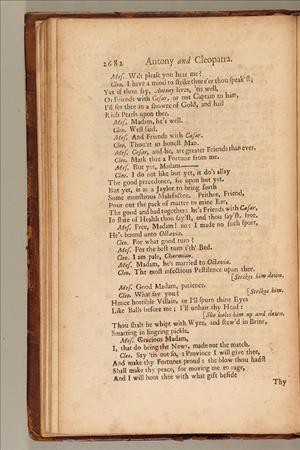 2682 Antony and Cleopatra.
Mes. Wilt please you hear me?
Cleo. I have a mind to strike thee e'er thou speak'st;
Yet if thou say, Antony lives, 'tis well,
Or Friends with Cæsar, or not Captain to him,
I'll set thee in a showre of Gold, and hail
Rich Pearls upon thee.
Mes. Madam, he's well.
Cleo. Well said.
Mes. And Friends with Cæsar.
Cleo. Thou'rt an honest Man.
Mes. Cæsar, and he, are greater Friends than ever.
Cleo. Mark thee a Fortune from me.
Mes. But yet, Madam——
Cleo. I do not like but yet, it do's allay
The good precedence, fie upon but yet.
But yet, is as a Jaylor to bring forth
Some monstrous Malefactor. Prithee, Friend,
Pour out the pack of matter to mine Ear,
The good and bad together: he's Friends with Cæsar,
In state of Health thou say'st, and thou say'st, free.
Mes. Free, Madam! no: I made no such sport,
He's bound unto Octavia.
Cleo. For what good turn?
Mes. For the best turn i'th' Bed.
Cleo. I am pale, Charmian.
Mes. Madam, he's married to Octavia.
Cleo. The most infectious Pestilence upon thee.
[Strikes him down.
Mes. Good Madam, patience.
Cleo. What say you? [Strikes him.
Hence horrible Villain, or I'll spurn thine Eyes
Like Balls before me; I'll unhair thy Head:
[She hales him up and down.
Thou shalt be whipt with Wyre, and stew'd in Brine,
Smarting in lingring pickle.
Mes. Gracious Madam,
I, that do bring the News, made not the match.
Cleo. Say 'tis not so, a Province I will give thee,
And make thy Fortunes proud: the blow thou hadst
Shall make thy peace, for moving me to rage,
And I will boot thee with what gift beside
Thy